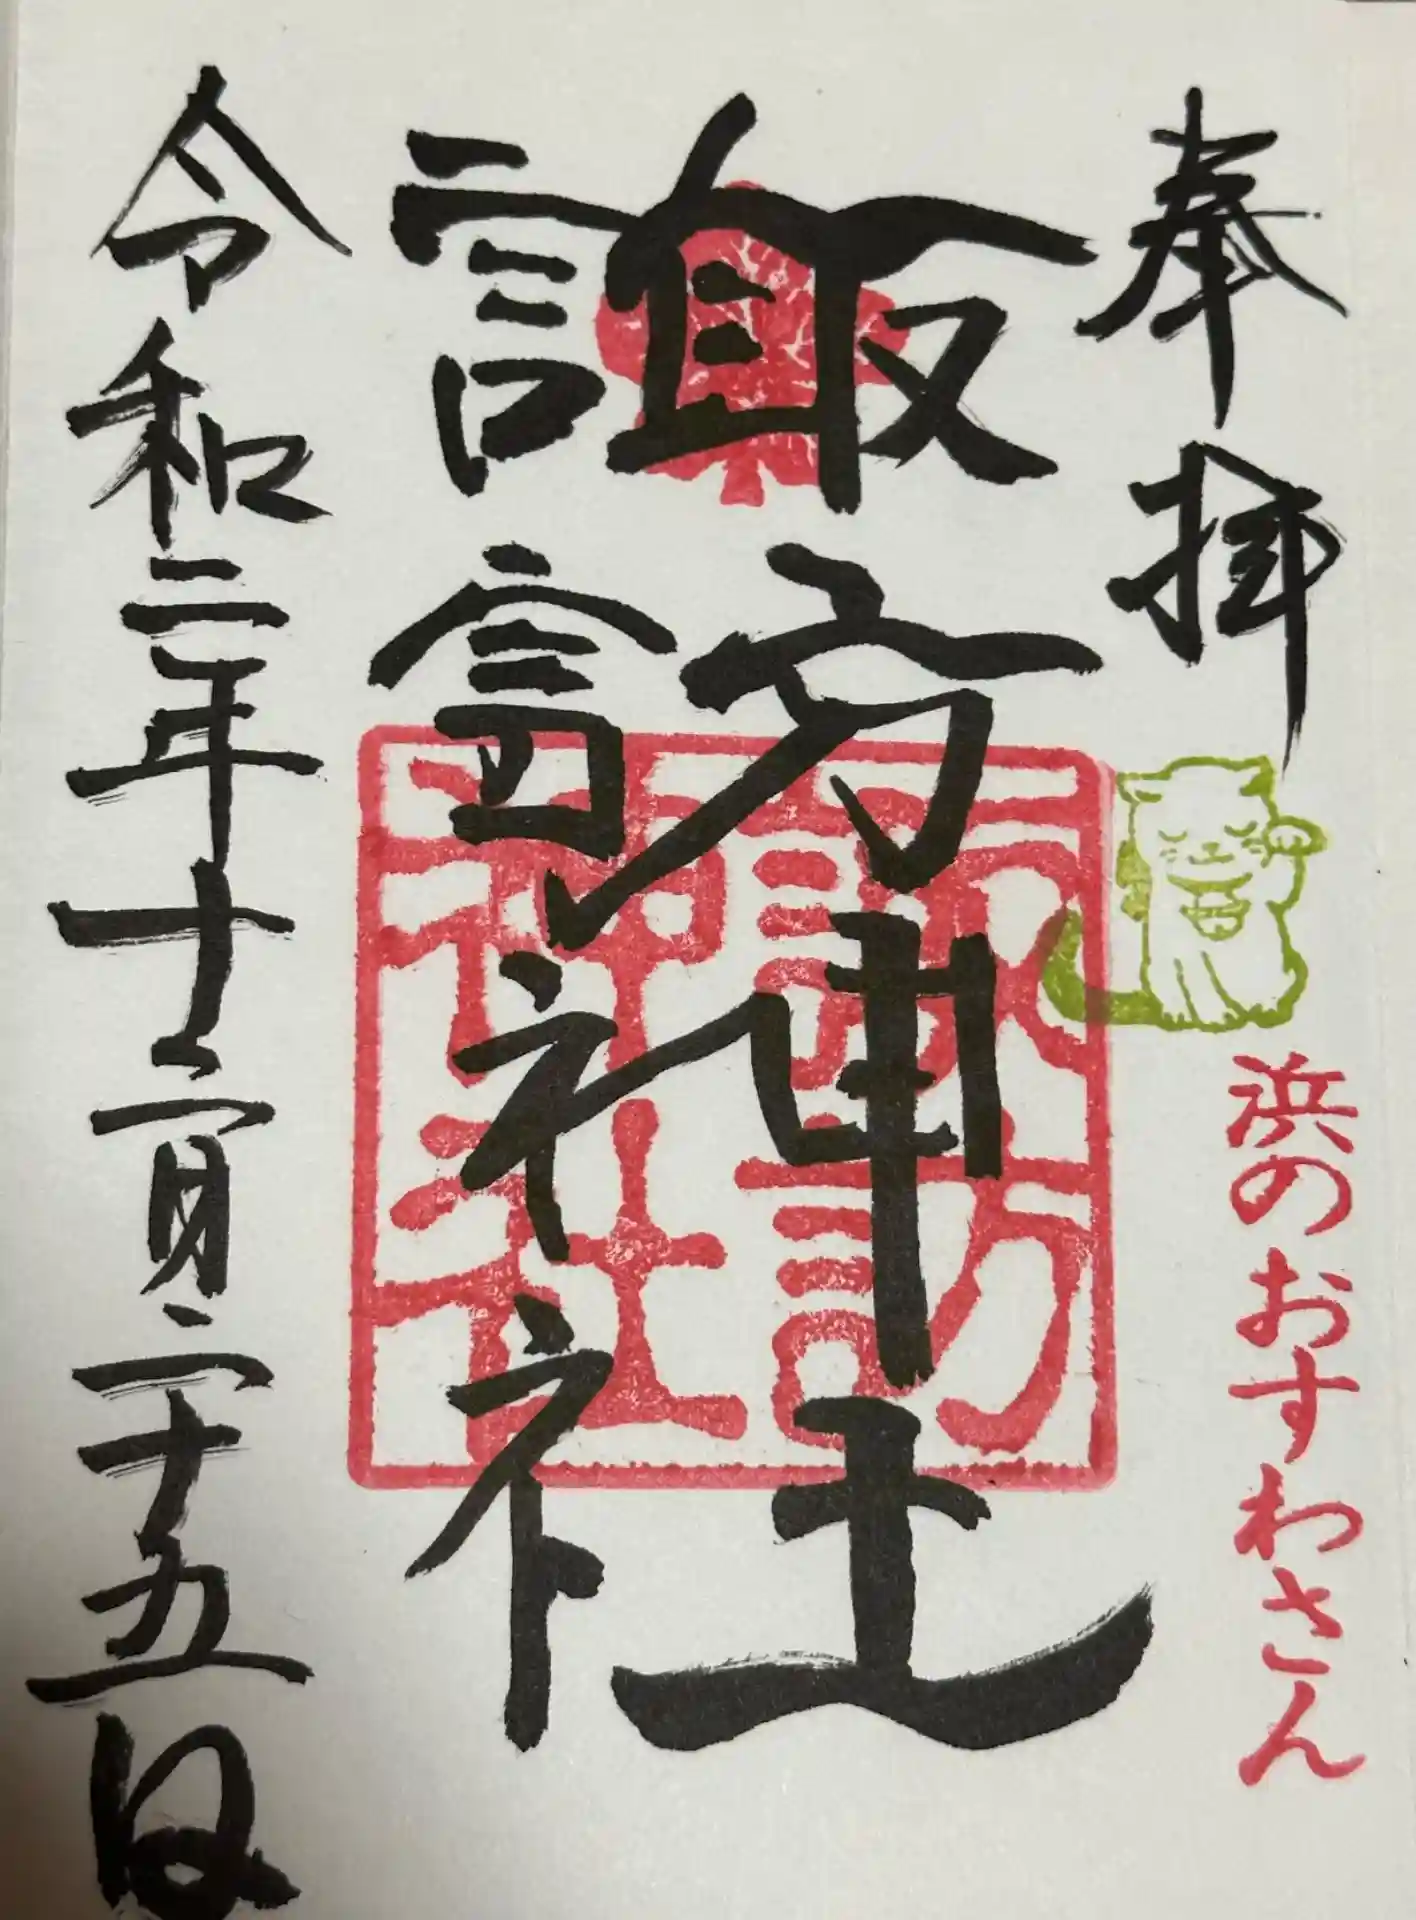 奉拝
浜のおすわさん
諏訪神社
諏訪
神社
令和二年十二月二十五日